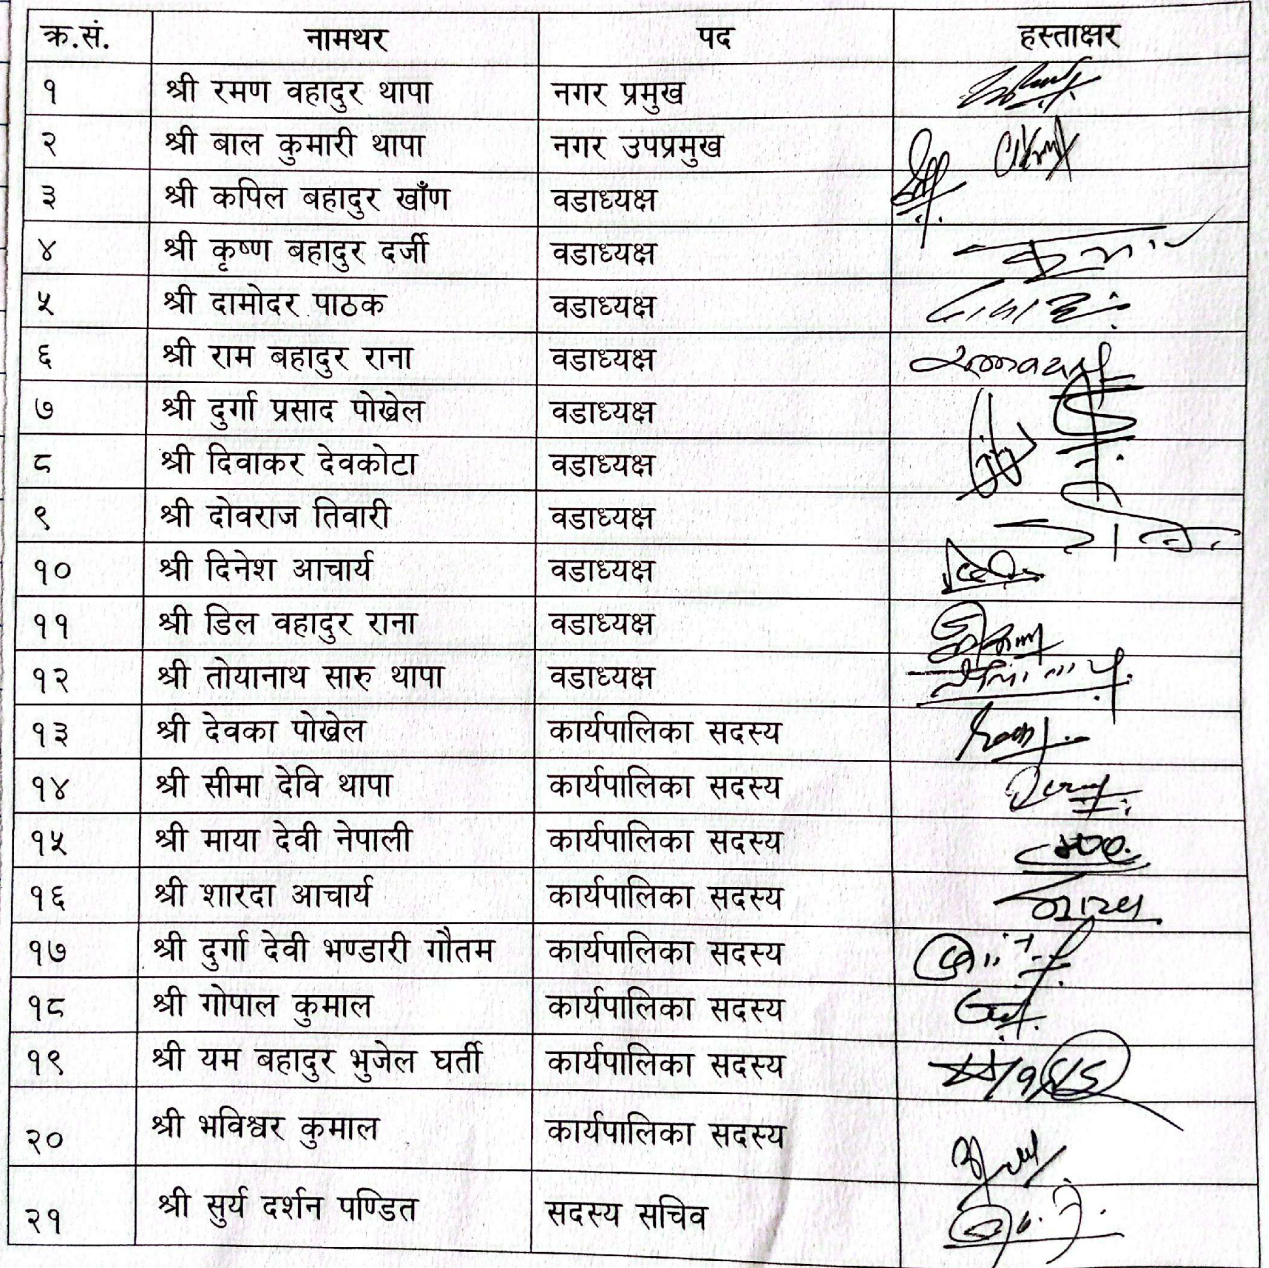 क्र.सं. नामथर पद हस्ताक्षर
१ श्री रमण वहादुर थापा नगर प्रमुख
२ श्री बाल कुमारी थापा नगर उपप्रमुख
३ श्री कपिल बहादुर खाँण वडाध्यक्ष
४ श्री कृष्ण बहादुर दर्जी वडाध्यक्ष
५ श्री दामोदर पाठक वडाध्यक्ष
६ श्री राम बहादुर राना वडाध्यक्ष
७ श्री दुर्गा प्रसाद पोख्रेल वडाध्यक्ष
८ श्री दिवाकर देवकोटा वडाध्यक्ष
९ श्री दोवराज तिवारी वडाध्यक्ष
१० श्री दिनेश आचार्य वडाध्यक्ष
११ श्री डिल वहादुर राना वडाध्यक्ष
१२ श्री तोयानाथ सारु थापा वडाध्यक्ष
१३ श्री देवका पोख्रेल कार्यपालिका सदस्य
१४ श्री सीमा देवि थापा कार्यपालिका सदस्य
१५ श्री माया देवी नेपाली कार्यपालिका सदस्य
१६ श्री शारदा आचार्य कार्यपालिका सदस्य
१७ श्री दुर्गा देवी भण्डारी गौतम कार्यपालिका सदस्य
१८ श्री गोपाल कुमाल कार्यपालिका सदस्य
१९ श्री यम बहादुर भुजेल घर्ती कार्यपालिका सदस्य
२० श्री भविश्वर कुमाल कार्यपालिका सदस्य
२१ श्री सुर्य दर्शन पण्डित सदस्य सचिव